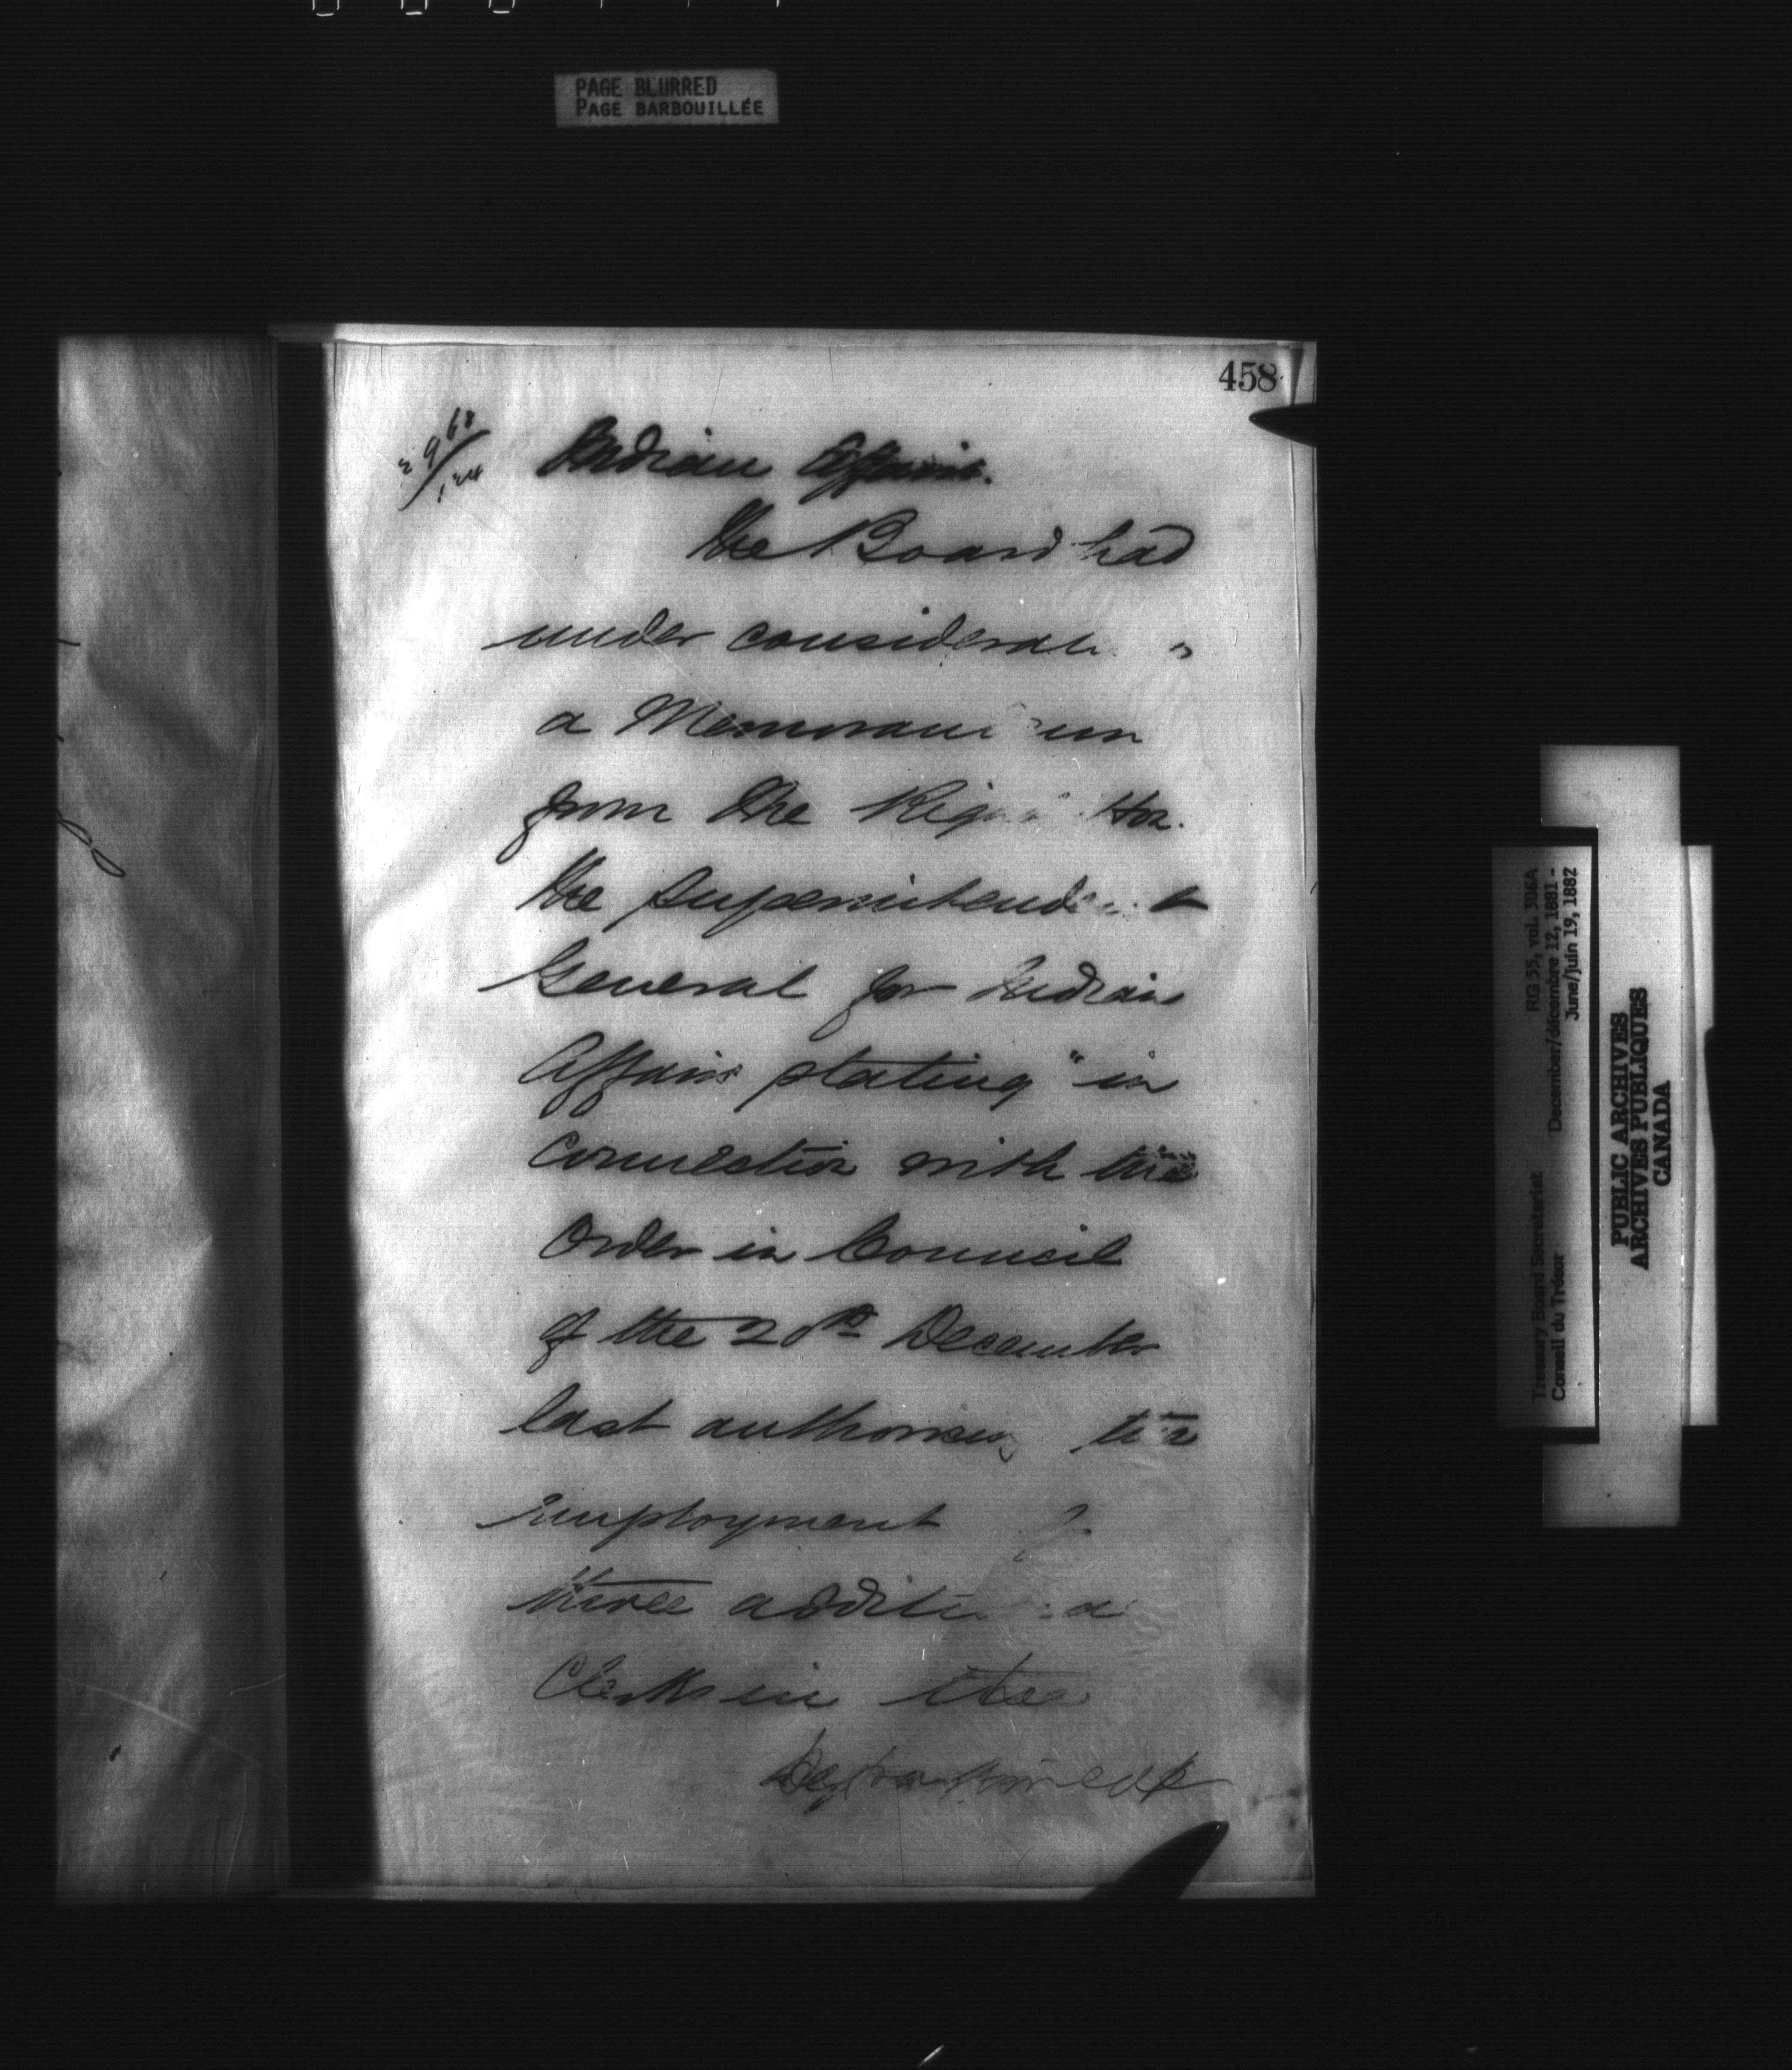 PAGE BLURRED
PAGE BARBOUILLÉE
458
Indian Affairs.
the Board had
under consideration
a Memorandum
from the Right Hon.
the Superintendent
General for Indian
Affairs stating "in
connection with the
Order in Council
of the 20th December
last authorising the
employment of
three additional
Clerks in the
Department
Treasury Board Secretariat RG 55, vol. 306A
Conseil du Trésor December/décembre 12, 1881 -
June/juin 19, 1882
PUBLIC ARCHIVES
ARCHIVES PUBLIQUES
CANADA